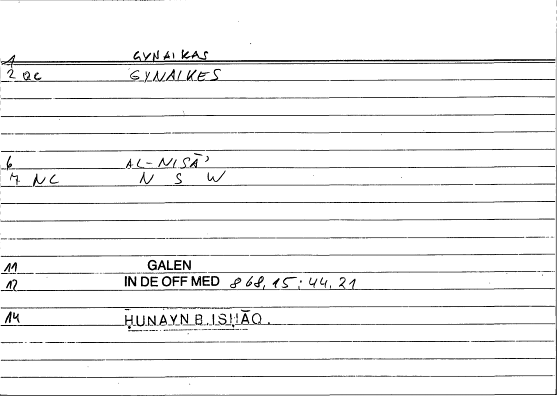 1 GYNAIKAS
2 QC GYNAIKES
6 AL-NISĀʾ
7 NC N S W
11 GALEN
12 IN DE OFF MED 868,15 : 44,21
14 ḤUNAYN B. ISḤĀQ.